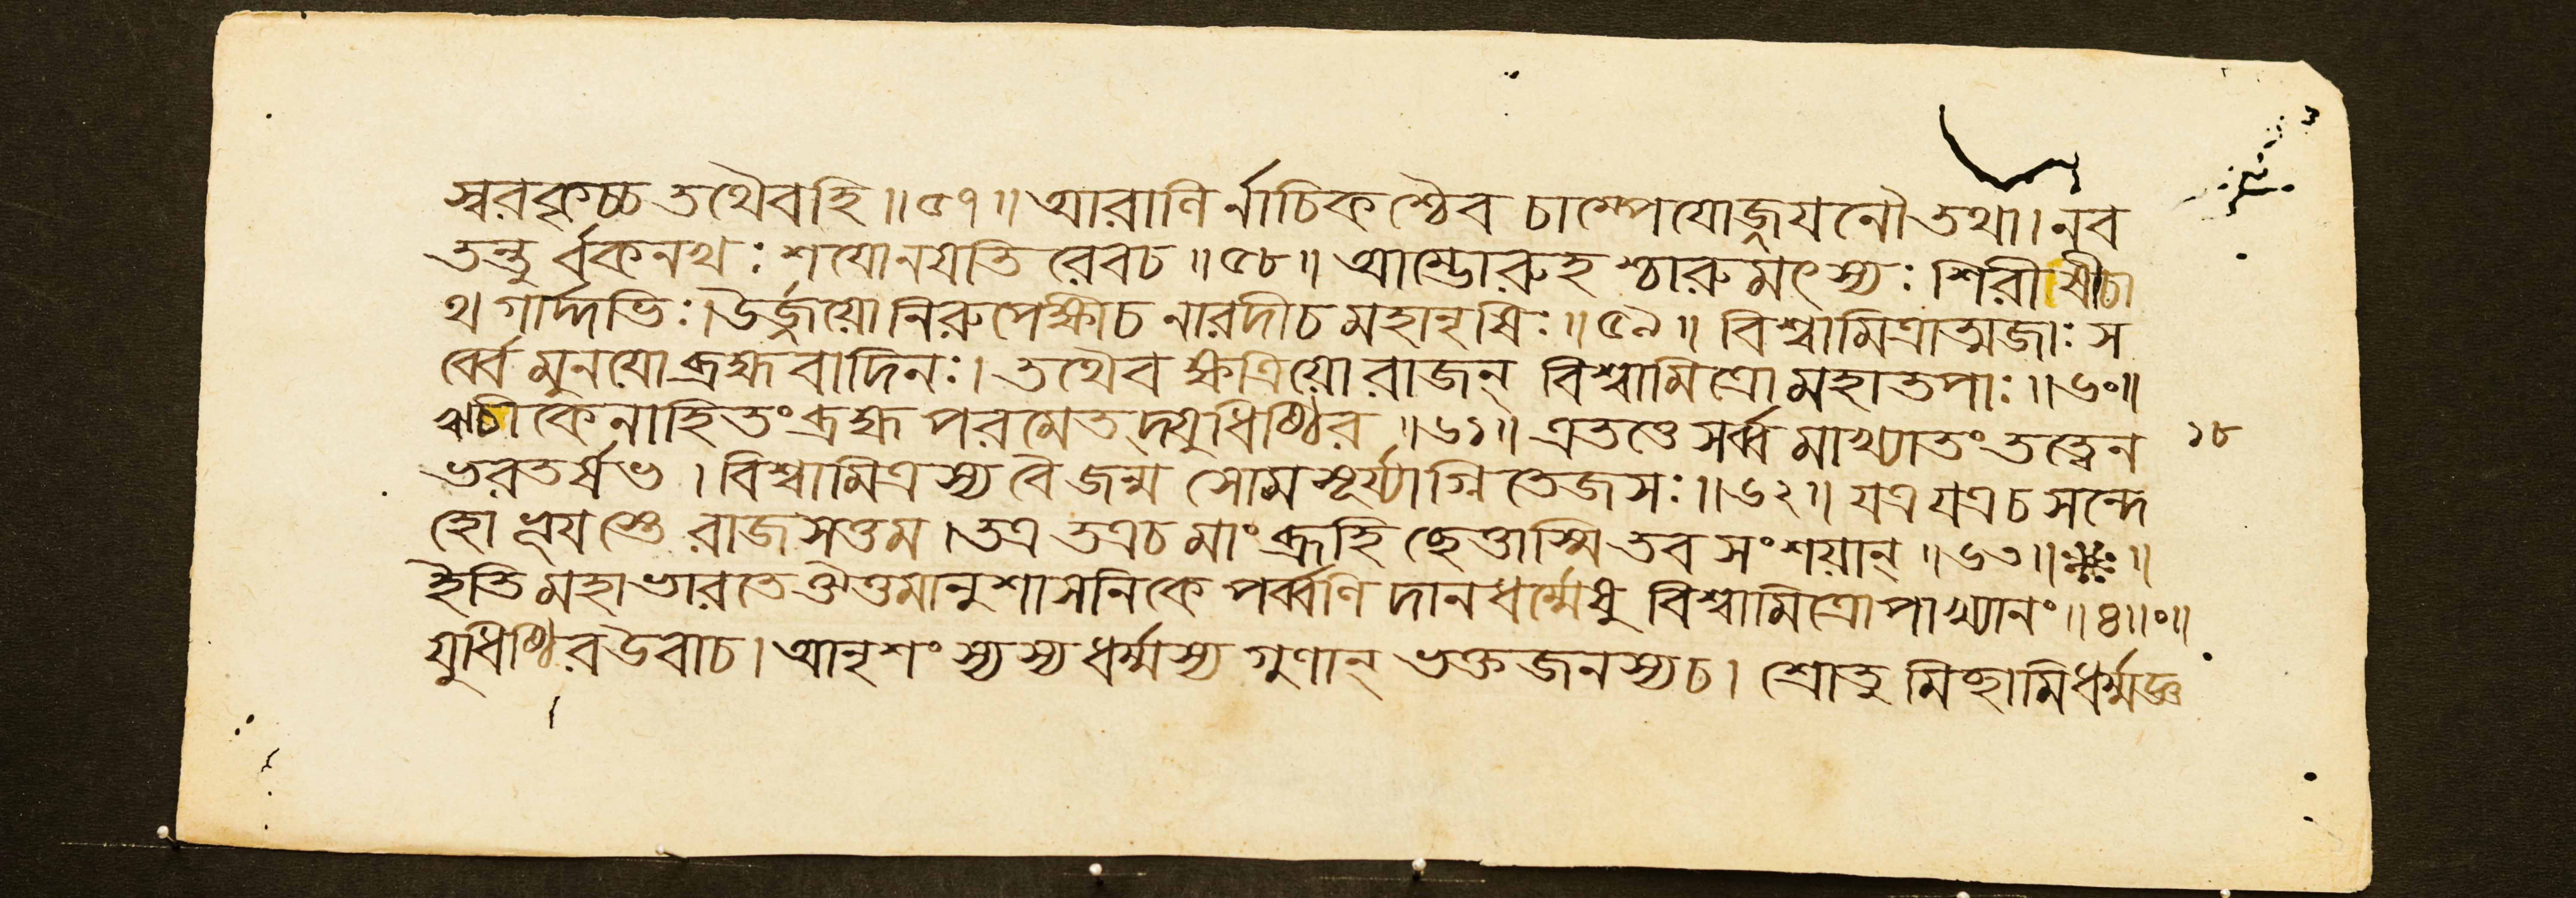 স্বরকৃচ্চ তথৈবহি॥৫৭॥আরাণি র্নাচিকশ্চৈব চাম্পেযোজ্জযনৌতথা।নব
তন্তু র্বকনখ:শযোনযতি রেবচ॥৫৮॥আম্ভোরুহ শ্চারুমৎস্য: শিরীষীচা
থ গার্দ্দভি:।উর্জ্জযোনিরুপেক্ষীচ নারদীচমহানৃষি:॥৫৯॥বিশ্বামিত্রাত্মজা: স
র্ব্বে মুনযো ব্রহ্মবাদিন:।তথৈব ক্ষত্রিয়োরাজন্ বিশ্বামিত্রো মহাতপা:॥৬০॥
ঋচীকেনাহিতংব্রহ্ম পরমেতদ্যুধিষ্ঠির॥৬১॥এতত্তে সর্ব্ব মাখ্যাতং তত্ত্বেন ১৮
ভরতর্ষভ।বিশ্বামিত্রস্য বৈ জন্ম সোমসূর্য্যাগ্নিতেজস:॥৬২॥যত্র যত্রচ সন্দে
হো ভূযস্তে রাজসত্তম।তত্র তত্রচ মাং ব্রূহি ছেত্তাস্মি তব সংশয়ান্॥৬৩॥
ইতি মহাভারতে ঔত্তমানুশাসনিকে পর্ব্বণি দানধর্ম্মেষু বিশ্বামিত্রোপাখ্যানং॥৪॥০॥
যুধিষ্ঠিরউবাচ।আনৃশংস্যস্য ধর্ম্মস্য গুণান্ ভক্তজনস্যচ।শ্রোতু মিচ্ছামিধর্ম্মজ্ঞ